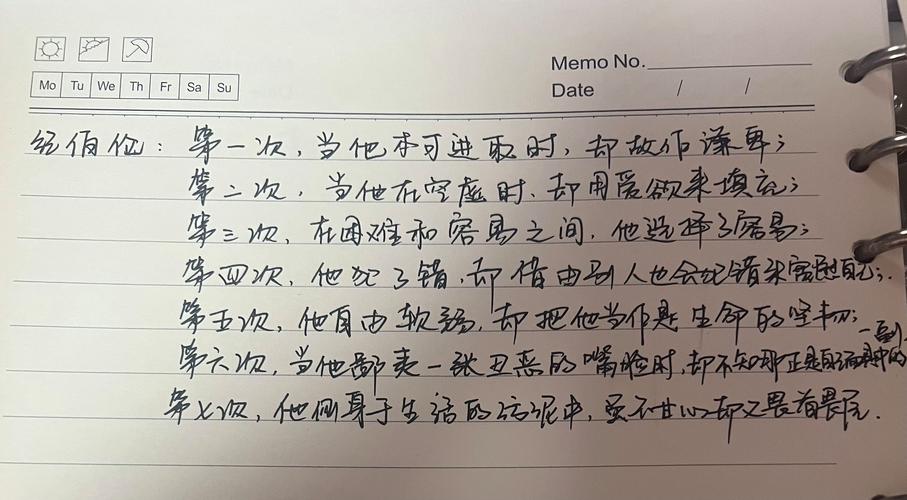 Memo No.
Mo Tu We Th Fr Sa Su
Date / /
纪伯伦：第一次，当他本可进取时，却故作谦卑；
第二次，当他在空虚时，却用爱欲来填充；
第三次，在困难和容易之间，他选择了容易；
第四次，他犯了错，却借由别人也会犯错来宽慰自己；
第五次，他自由软弱，却把他当作是生命的坚韧；
第六次，当他鄙夷一张丑恶的嘴脸时，却不知那正是自己面具中的一副
第七次，他侧身于生活的污泥中，虽不甘心却又畏首畏尾．